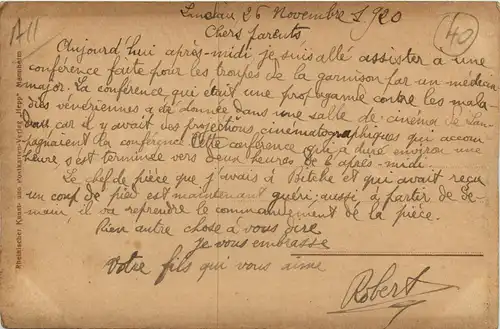 All
40
Landau 26 Novembre 1920
Chers parents
Aujourd'hui après-midi je suis allé assister à une
conférence faite pour les troupes de la garnison par un médecin
major. La conférence qui était une propagande contre les mala
dies vénériennes a été donnée dans une salle de cinéma de Lan-
dau car il y avait des projections cinématographiques qui accom
pagnaient la conférence. Cette conférence qui a duré environ une
heure, s'est terminée vers deux heures de l'après-midi.
Le chef de pièce que j'avais à Bitche et qui avait reçu
un coup de pied est maintenant guéri; aussi, à partir de de-
main, il va reprendre le commandement de la pièce.
Rien autre chose à vous dire
Je vous embrasse
Votre fils qui vous aime
Robert
Rheinischer Kunst- und Postkarten-Verlag Mannheim